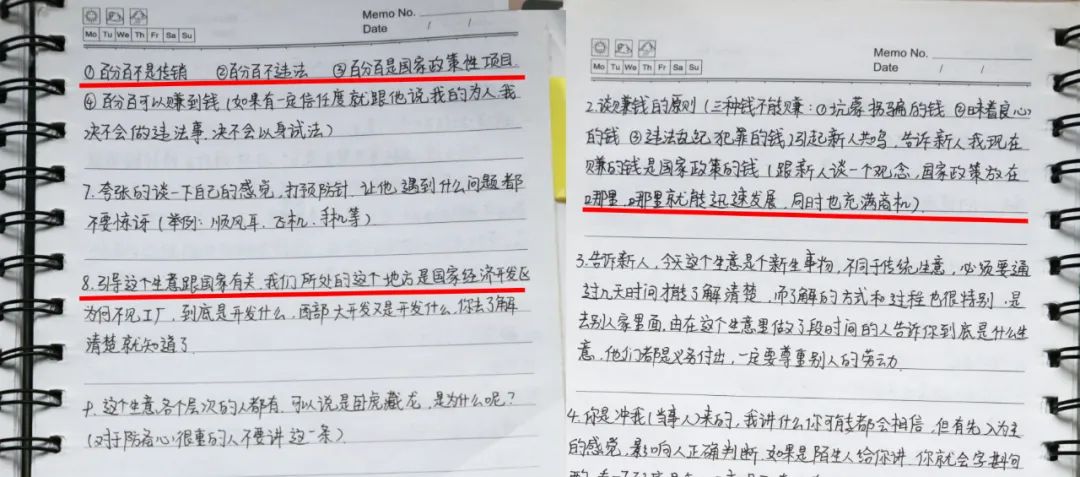 Memo No.
Date / /
Mo Tu We Th Fr Sa Su
①百分百不是传销 ②百分百不违法 ③百分百是国家政策性项目
④百分百可以赚到钱(如果有一定信任度就跟他说我的为人我
决不会做违法事,决不会以身试法)
7.夸张的谈一下自己的感觉,打预防针,让他遇到什么问题都
不要惊讶(举例:顺风耳、飞机、手机等)
8.引导这个生意跟国家有关,我们所处的这个地方是国家经济开发区
为何不见工厂,到底是开发什么,西部大开发又是开发什么,你去了解
清楚就知道了
9.这个生意各个层次的人都有,可以说是卧虎藏龙,是为什么呢?
(对于防备心很重的人不要讲这一条)
Memo No.
Date / /
Mo Tu We Th Fr Sa Su
2.谈赚钱的原则(三种钱不能赚:①坑蒙拐骗的钱 ②昧着良心
的钱 ③违法乱纪犯罪的钱)引起新人共鸣,告诉新人我现在
赚的钱是国家政策的钱(跟新人谈一个观念,国家政策放在
哪里,哪里就能迅速发展,同时也充满商机)
3.告诉新人,今天这个生意是个新生事物,不同于传统生意,必须要通
过几天时间才能了解清楚,而了解的方式和过程也很特别,是
去别人家里面,由在这个生意里做了段时间的人告诉你到底是什么生
意,他们都是义务付出,一定要尊重别人的劳动
4.你是冲我(当事人)来的,我讲什么你可能都会相信,但有先入为主
的感觉,影响人正确判断,如果是陌生人给你讲,你就会字斟句